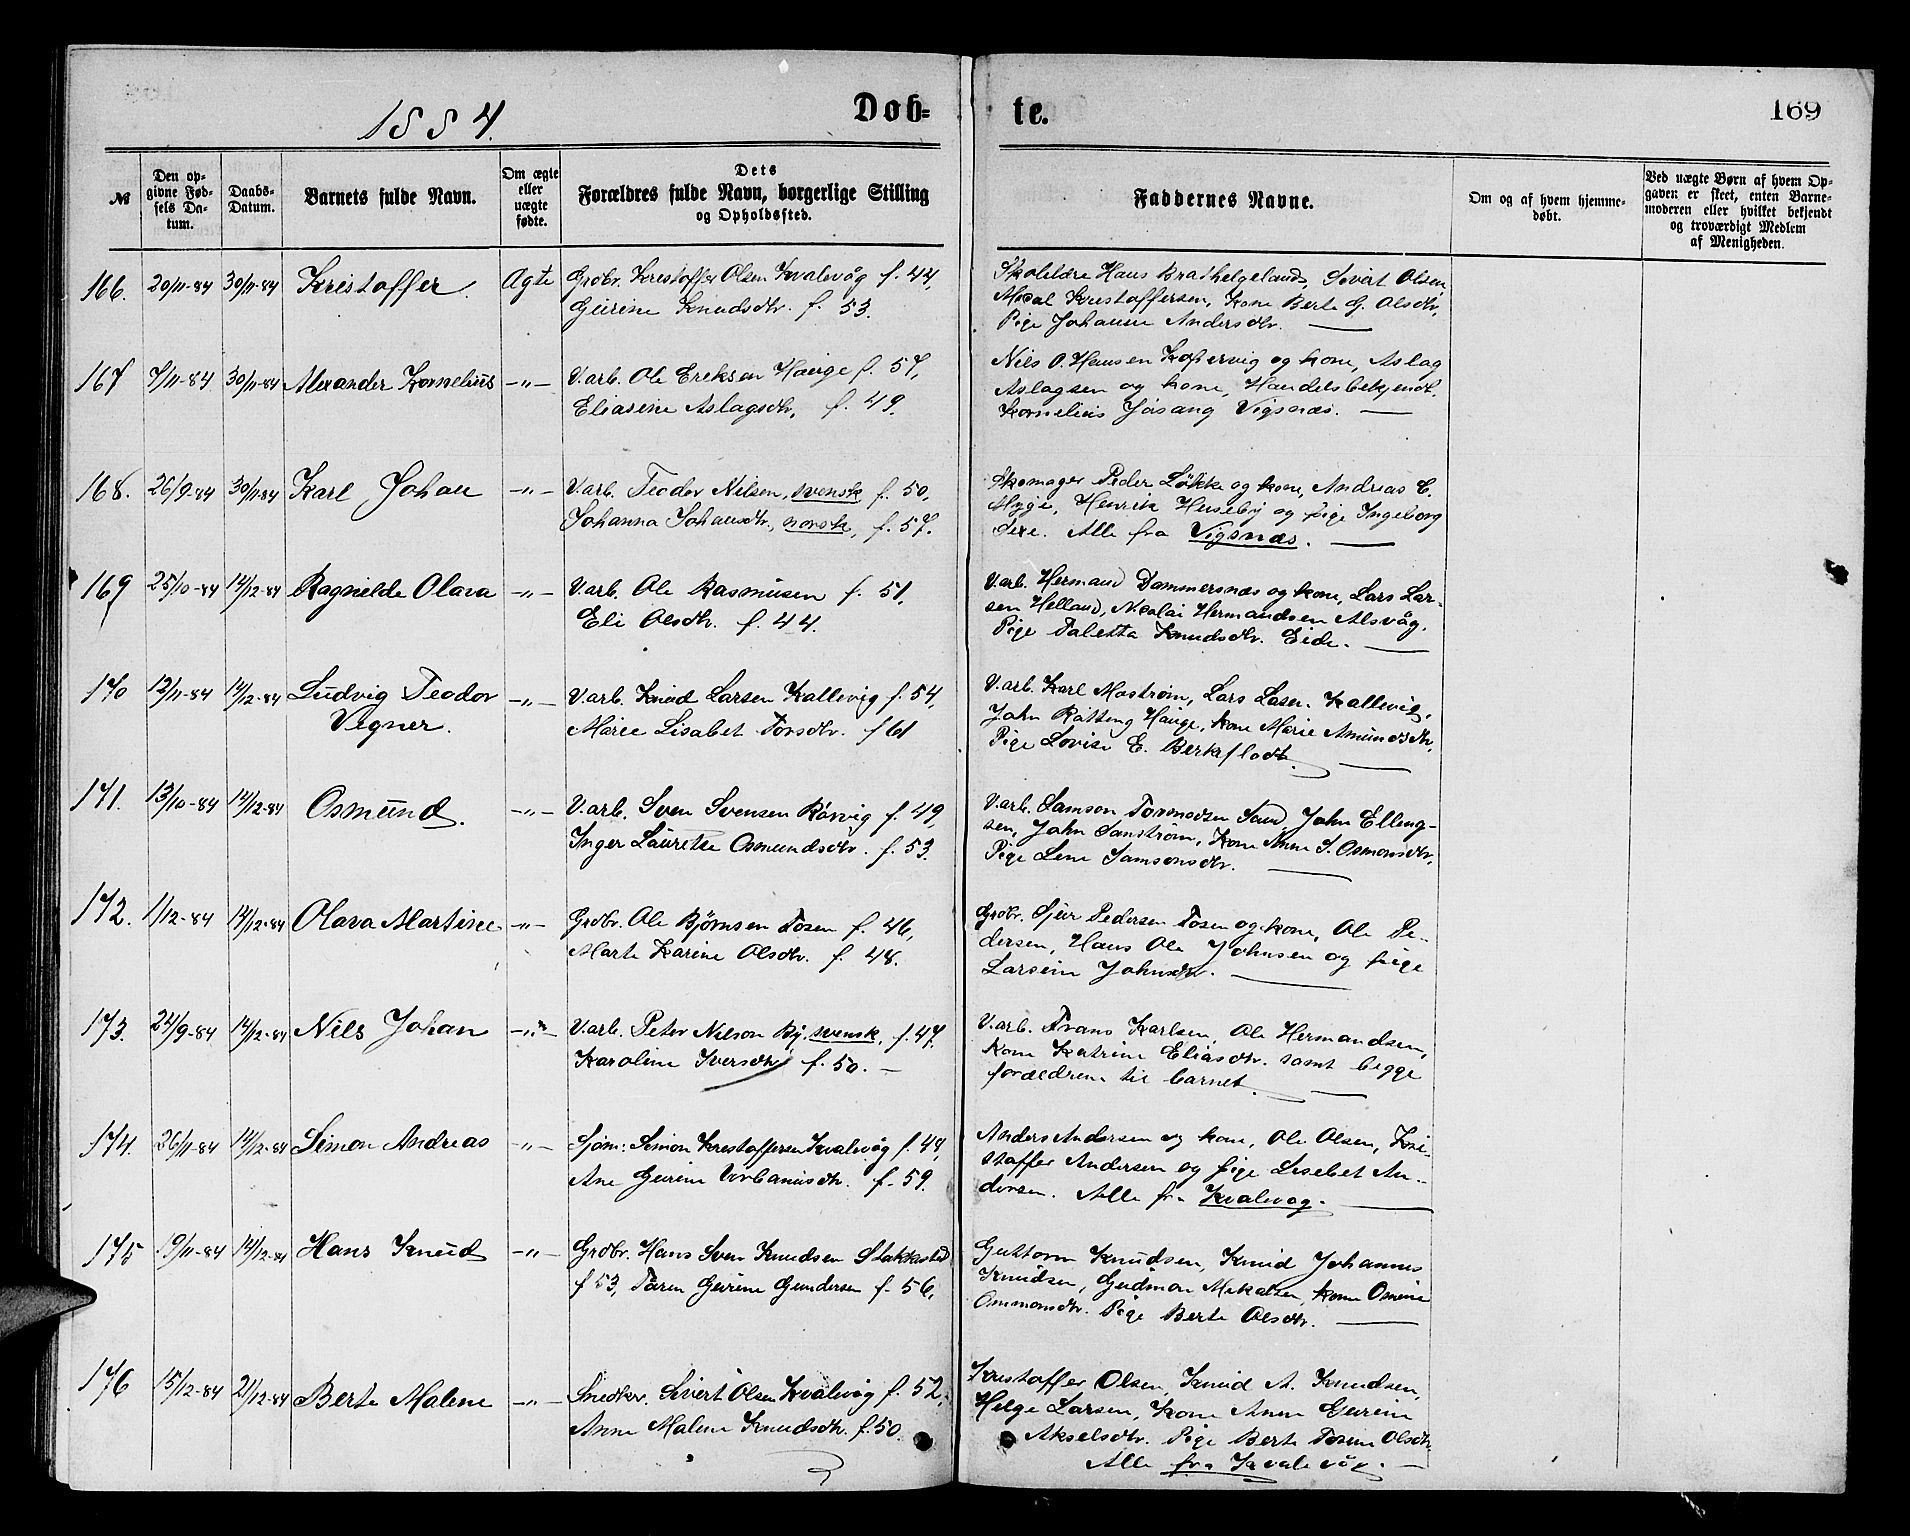 1884.
Døb=
te.
169
№
Den op-
givne Fød-
sels Da-
tum.
Daabs-
Datum.
Barnets fulde Navn.
Om ægte
eller
uægte
fødte.
Dets
Forældres fulde Navn, borgerlige Stilling
og Opholdssted.
Faddernes Navne.
Om og af hvem hjemme-
døbt.
Ved uægte Børn af hvem Op-
gaven er skeet, enten Barne-
moderen eller hvilket bekjendt
og troværdigt Medlem
af Menigheden.
166. 20/11-84 30/11-84 Kristoffer. Ægte Grdbr. Kristoffer Olsen Kvalevåg f. 44,
Geirine Knudsdtr. f. 53.
Skolelære Hans Brathelgeland, Sivert Olsen,
Mikal Kristoffersen, Kone Berte G. Olsdtr,
Pige Johanne Andersdtr.
167 7/11-84 30/11-84 Alexander Kornelius -"- V.arb. Ole Ereksen Hauge f. 57,
Eliasine Aslagsdtr, f. 49.
Nils O. Hansen Kopervig og kone, Aslag
Aslagsen og kone, Handelsbetjendt.
Kornelius Jøsang Vigsnæs.
168. 26/9-84 30/11-84 Karl Johan -"- V.arb. Teodor Nilsen, svensk f. 50,
Johanna Johansdtr, norsk, f. 57.
Skomager Peder Løkke og kone, Andreas E.
Myge, Henrik Huseby og pige Ingeborg
Sexe. Alle fra Vigsnæs.
169 25/10-84 14/12-84 Ragnilde Olava -"- V.arb. Ole Rasmusen f. 51,
Eli Olsdtr. f. 44.
V.arb. Hermand Dammersnæs og kone, Lars Lar-
sen Helland, Nicolai Hermandsen Alsvåg,
Pige Taletta Knudsdtr. Eide.
170 12/11-84 14/12-84 Ludvig Teodor -"- V.arb. Knud Larsen Kallevig f. 54,
Vegner. Marie Lisabet Torsdtr. f 61
V.arb. Karl Mostrøm, Lars Lasen. Kallevig,
John Røtting Hauge, kone Marie Amundsdtr,
Pige Lovise E. Berkaflodt.
171. 13/10-84 14/12-84 Osmund. -"- V.arb. Sven Svensen Rørvig f. 49,
Inger Lauretse Osmundsdtr. f. 53.
V.arb. Samson Tormodsen Sand John Elling-
sen, John Sanstrøm, Kone Anne S. Osmonsdtr,
Pige Lene Samsonsdtr.
172. 1/12-84 14/12-84 Olava Martine -"- Grdbr. Ole Bjørnsen Tosen f. 46,
Marte Karine Olsdtr. f. 48.
Grdbr. Sjur Pedersen Tosen og kone, Ole Pe-
dersen, Hans Ole Johnsen og pige
Larsine Johnsdtr.
173. 24/9-84 14/12-84 Nils Johan -"- V.arb. Peter Nilson By, svensk, f. 47.
Karoline Iversdtr f. 50.
V.arb. Frans Karlsen, Ole Hermandsen,
Kone Katrine Eliasdtr. samt begge
forældrene til barnet.
174. 26/11-84 14/12-84 Simon Andreas -"- Sjøm: Simon Kristoffersen Kvalevåg f. 44,
Ane Geirine Urbanusdtr. f. 59.
Anders Andersen og kone, Ole Olsen, Kri-
stoffer Andersen og pige Lisebet An-
dersen. Alle fra Kvalevåg.
175 9/11-84 14/12-84 Hans Knud -"- Grdbr. Hans Sven Knudsen Stakkested
f 53, Taren Geirine Gundersen f. 56,
Guttorm Knudsen, Knud Johannes
Knudsen, Gudmon Mikalsen, kone Osmine
Ommonsdtr. Pige Berte Olsdtr.
176 15/12-84 21/12-84 Berte Malene -"- Snedker. Sivert Olsen Kvalevåg f. 52,
Anne Malene Knudsdtr. f. 50.
Kristoffer Olsen, Knud A. Knudsen,
Helge Larsen, Kone Anne Geirine
Akselsdtr. Pige Berte Tosine Olsdtr.
Alle fra Kvalevåg.